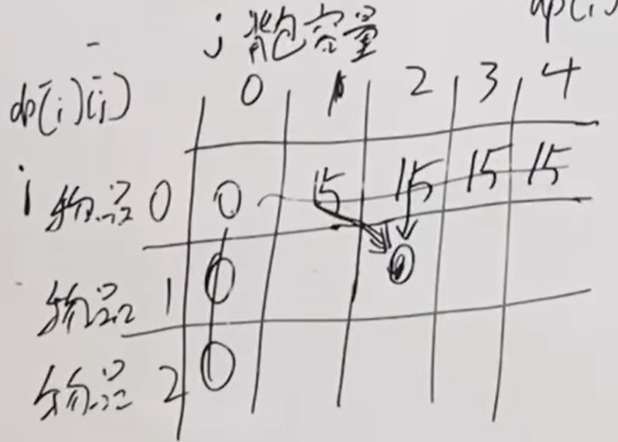 dp(i)
j 背包容量
dp[i][j] 0 1 2 3 4
i 物品 0 0 15 15 15 15
物品 1 0 0
物品 2 0